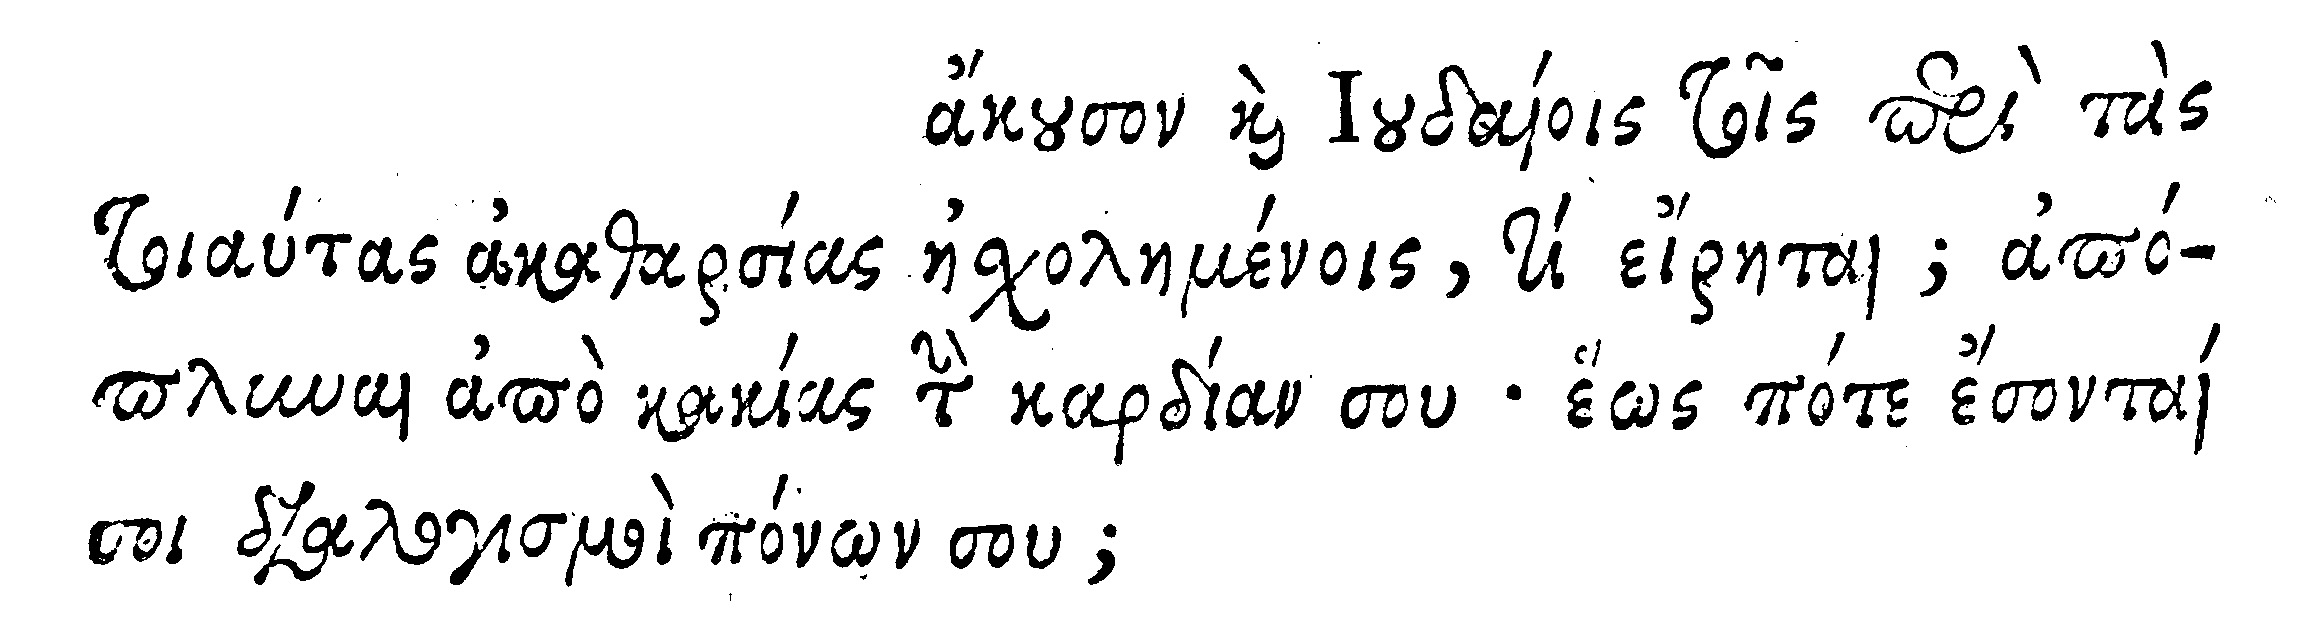 ἄκουσον καὶ Ἰουδαίοις τοῖς περὶ τὰς
τοιαύτας ἀκαθαρσίας ἠχολημένοις, τί εἴρηται; ἀπό-
πλυναι ἀπὸ κακίας τὴν καρδίαν σου· ἕως πότε ἔσονταί
σοι διαλογισμοὶ πόνων σου;